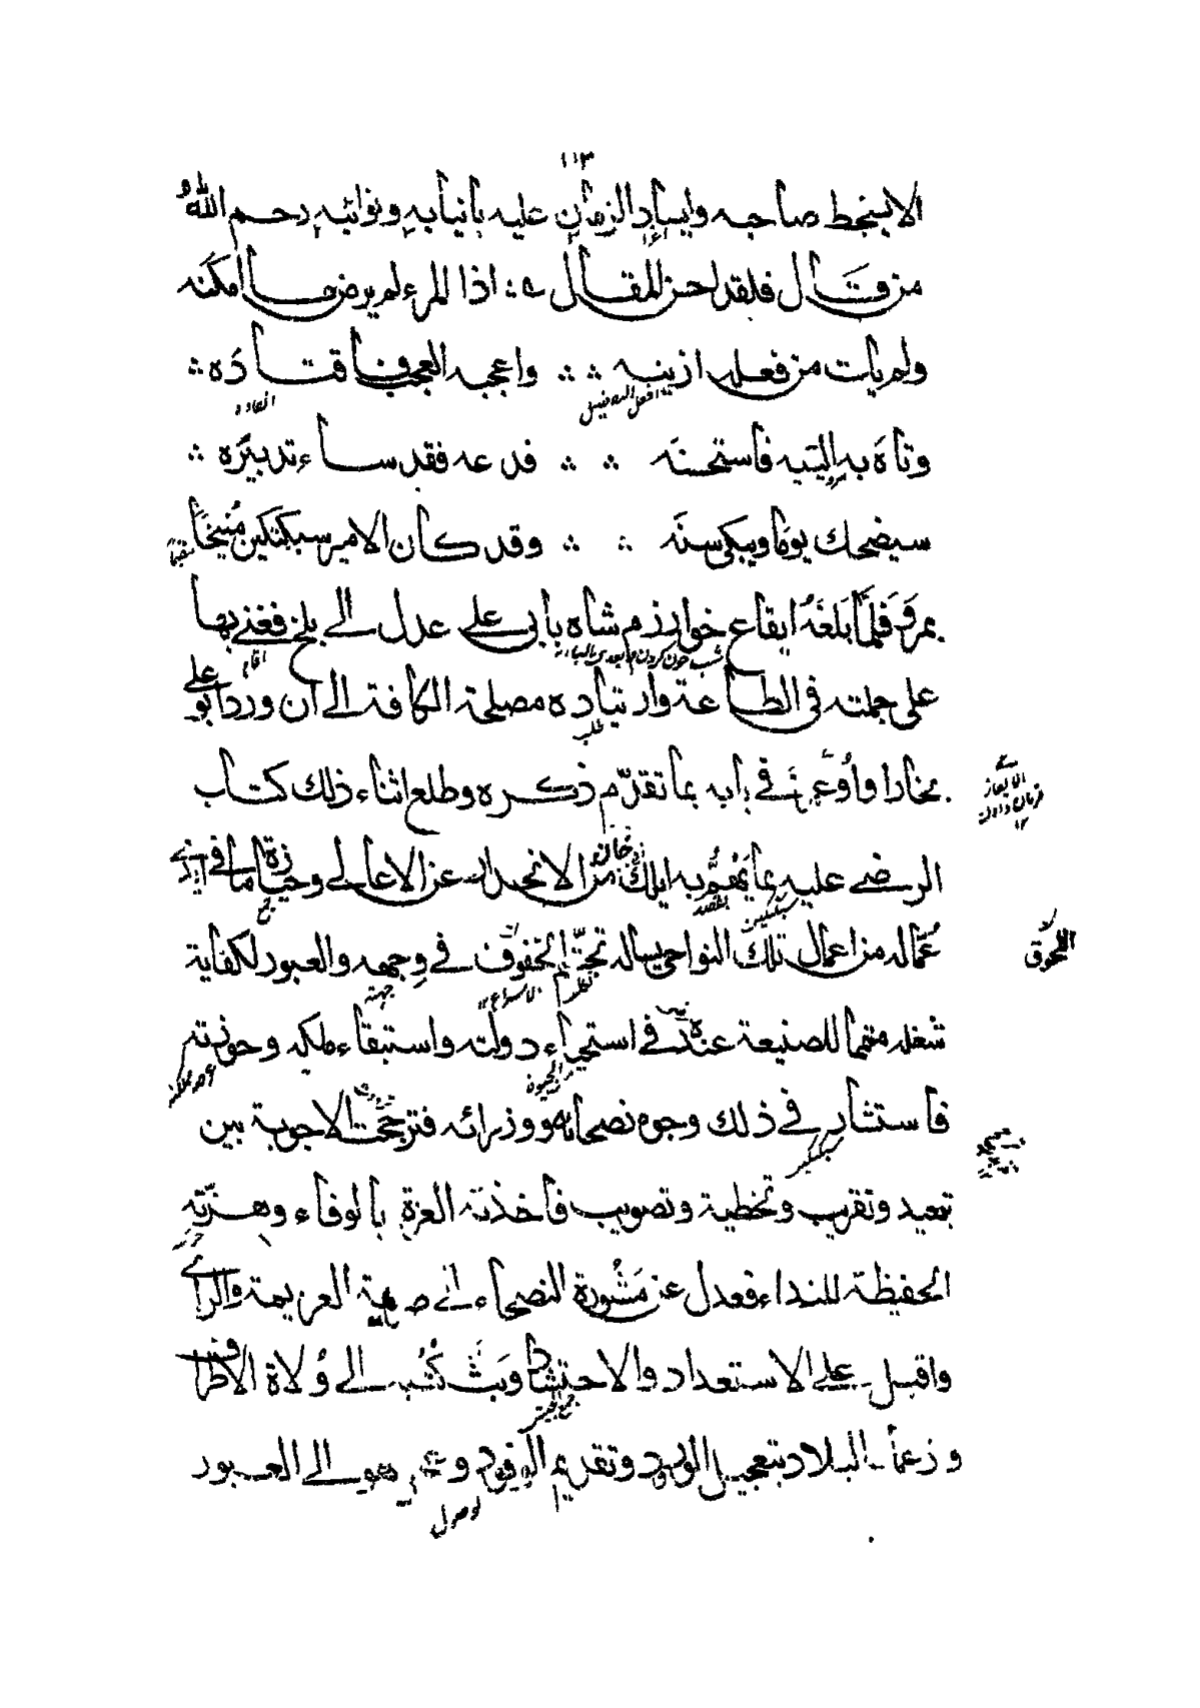 ١١٣
الا بسخط صاحبه وايساد الزمان عليه بانيابه ونوائبه رحم الله
من قال فلقد احسن المقال ∴ اذا المرء لم يرض ما امكنه
ولم يأت من فعله ازينه ∴ ∴ واعجبه العجب فاقتاده ∴
وتاه به التيه فاستحسنه ∴ ∴ فدعه فقد ساء تدبيره ∴
سيضحك يوما ويبكي سنه ∴ ∴ وقد كان الامير سبكتكين منيخا
بمرو فلما بلغه ايقاع خوارزم شاه بابي علي عدل الى بلخ فغني بها
على جملته في الطاعة وارتياده مصلحة الكافة الى ان ورد ابو علي
بخارا واوعز في بابه بما تقدم ذكره وطلع اثناء ذلك كتاب
الرضي عليه بما يهم به ايلك خان من الانحدار عن الاعالي وحيازة ما في ايدي
عماله من اعمال تلك النواحي يساله تجشم الخفوف في وجهه والعبور لكفاية
شغله متمما للصنيعة عنده في استحياء دولته واستبقاء ملكه وحوزته
فاستشار في ذلك وجوه نصحائه ووزرائه فترجحت الاجوبة بين
تبعيد وتقريب وتخطية وتصويب فاخذته العزة بالوفاء وهزته
الحفيظة للنداء فعدل عن مشورة النصحاء الى صريمة العزيمة والراي
واقبل على الاستعداد والاحتشاد وبث كتبه الى ولاة الاطراف
وزعماء البلاد بتعجيل الورود وتقديم الوفود وعبر هو الى العبور
افعل التفضيل
العادة
طلب
اقام
سبكتكين
جمع
جهة
الاسراع
سبكتكين
وصول
اللحوق